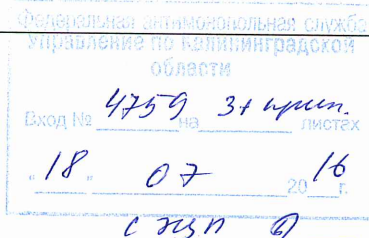 Федеральная антимонопольная служба
Управление по Калининградской
области
Вход № 4759 на 3+прил. листах
"18" 07 2016 г.
с ЭЦП